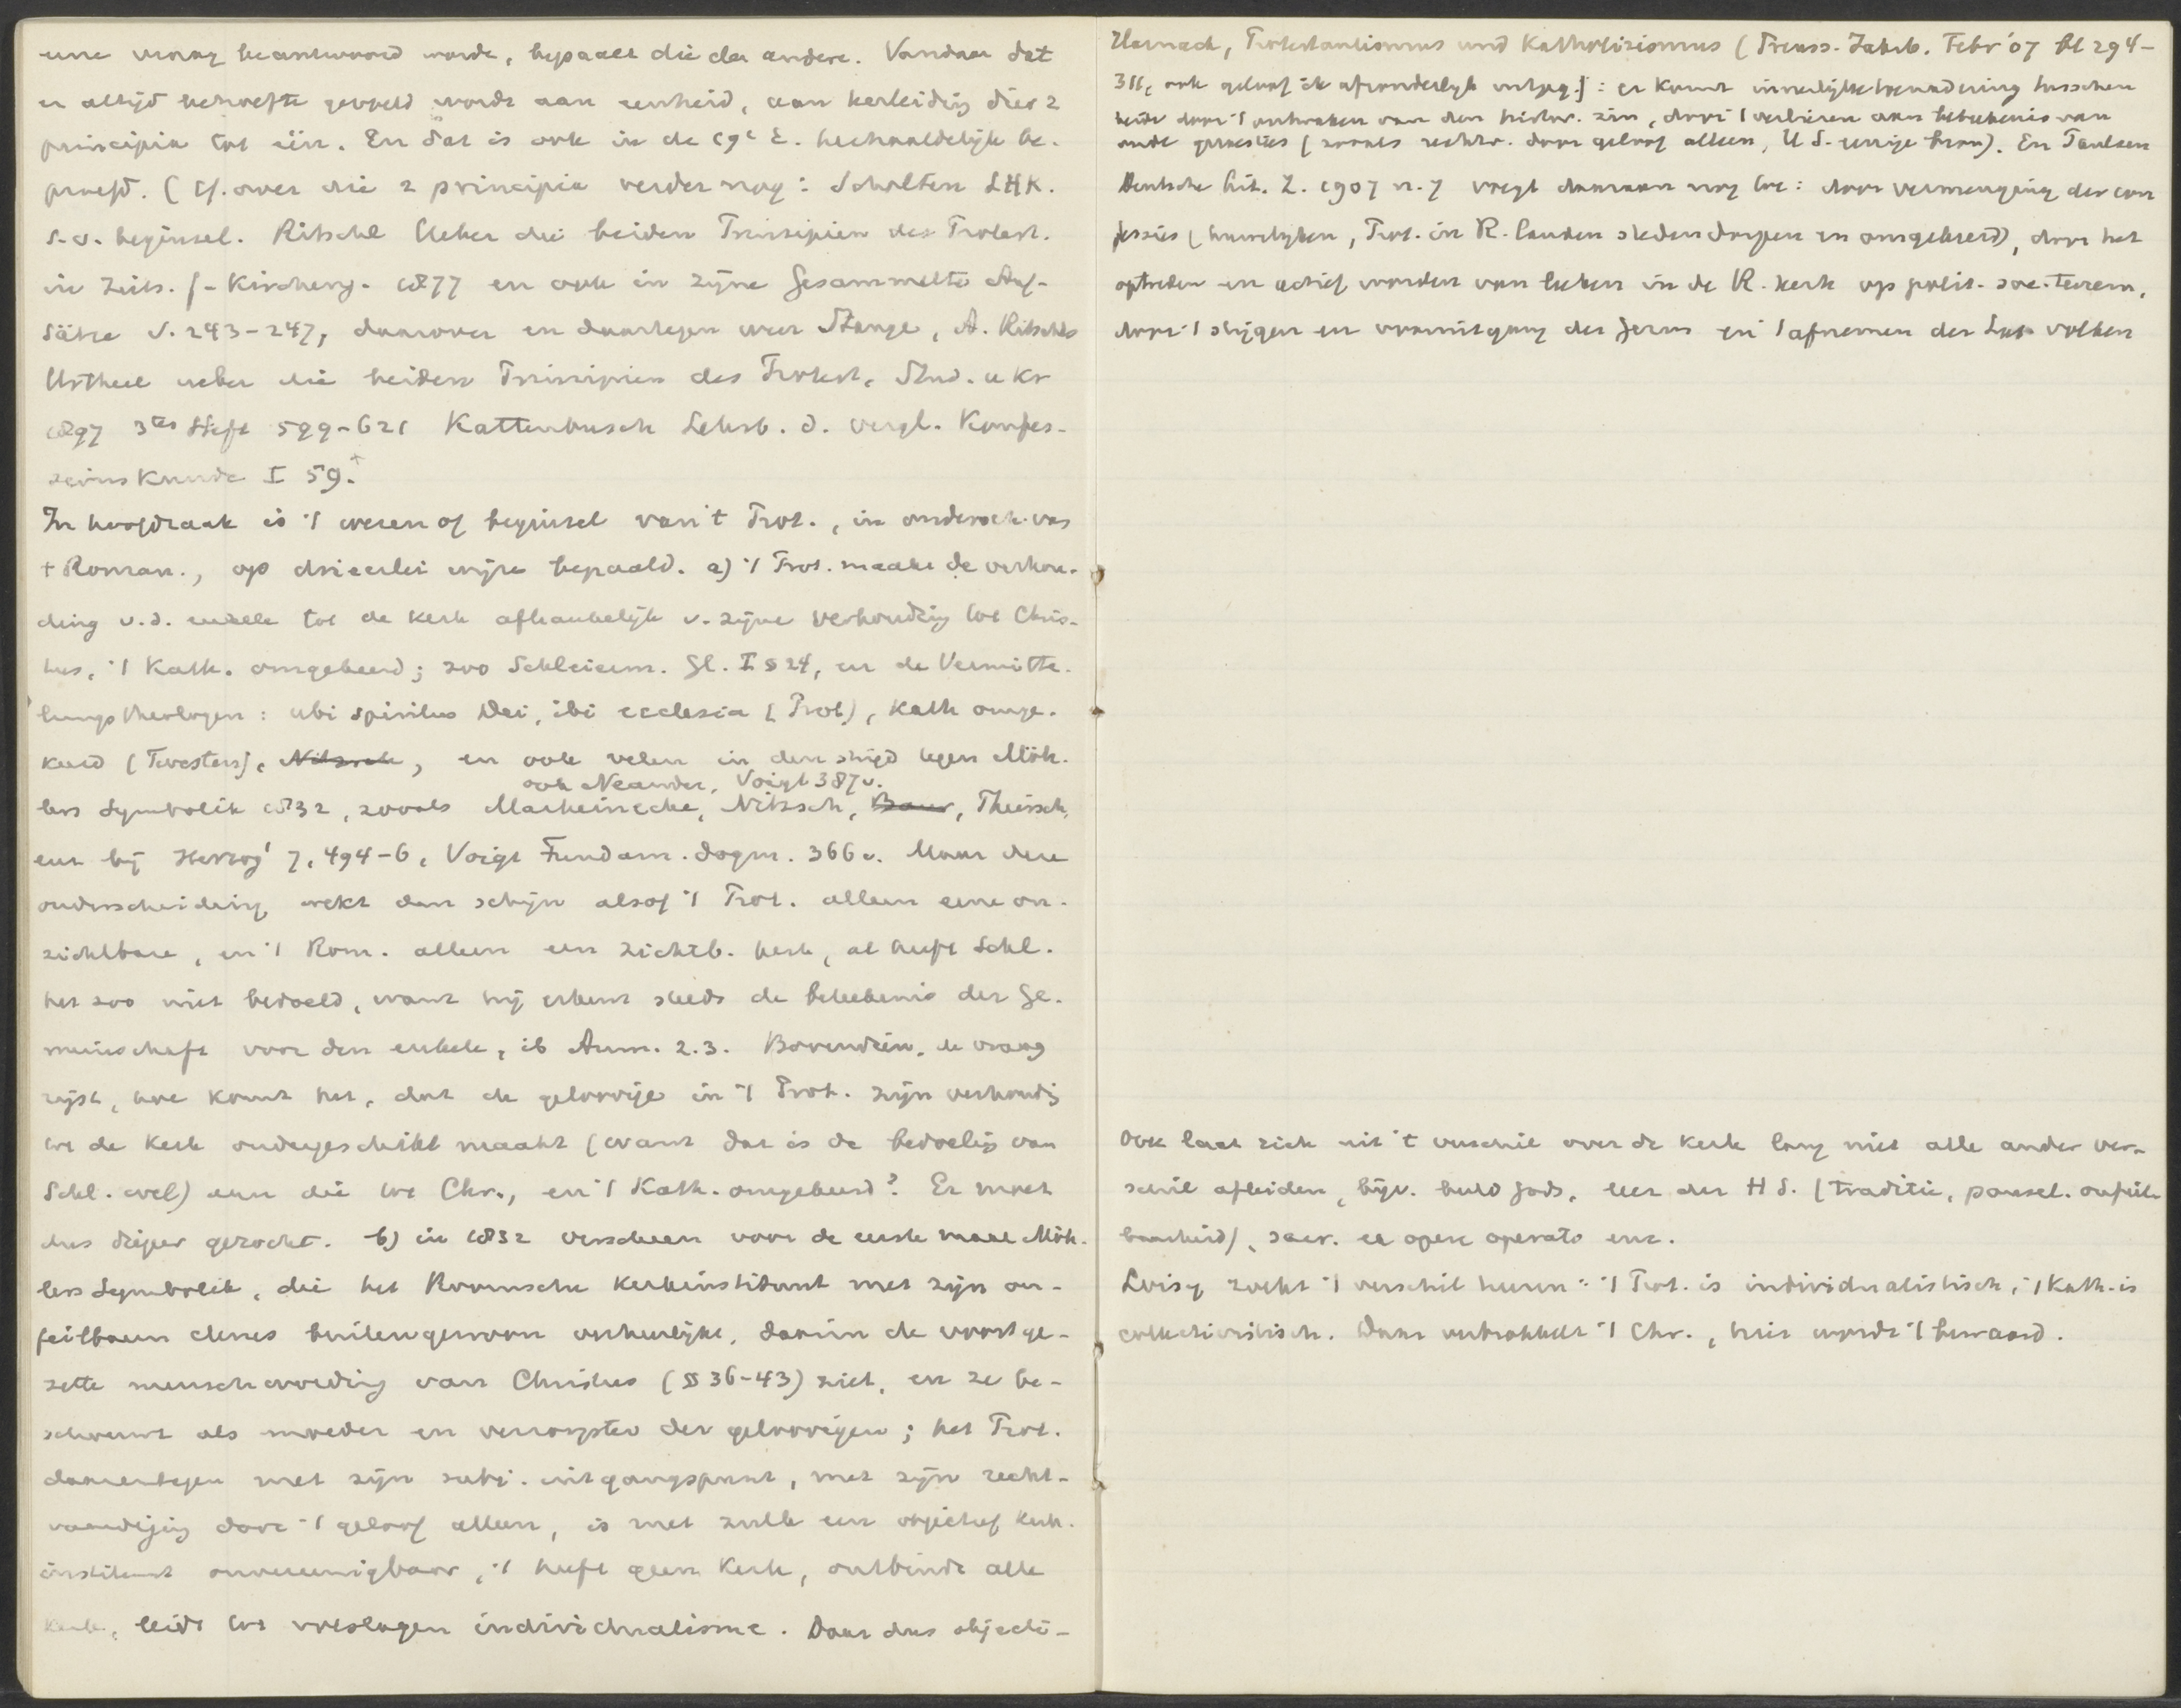 eene vraag beantwoord wordt, bepaalt die der andere. Vandaar dat
er altijd behoefte gevoeld wordt aan eenheid, aan herleiding dier 2
principia tot één. En dat is ook in de 19e E. herhaaldelijk be-
proefd. (Cf. over die 2 principia verder nog: Scholten LHK.
s.v. beginsel. Ritschl Ueber die beiden Prinzipien des Protest.
in Zeits. f. Kircheng. 1877 en ook in zijne Gesammelte Auf-
sätze S. 243-247, daarover en daartegen weer Stange, A. Ritschls
Urtheil ueber die beiden Prinzipien des Protest. Stud. u Kr
1897 3tes Heft 599-621 Kattenbusch Lehrb. d. vergl. Konfes-
sions Kunde I 59.
In hoofdzaak is 't wezen of beginsel van 't Prot., in ondersch. van
't Roman., op drieerlei wijze bepaald. a) 't Prot. maakt de verhou-
ding v.d. enkele tot de kerk afhankelijk v. zijne verhouding tot Chris-
tus, 't Kath. omgekeerd; zoo Schleierm. Gl. I § 24, en de Vermitte-
lungstheologen: ubi spiritus Dei, ibi ecclesia (Prot), Kath omge-
keerd (Twesten), Nitzsch, en ook velen in den strijd tegen Möh-
ook Neander, Voigt 387v.
lers Symbolik 1832, zooals Marheinecke, Nitzsch, Baur, Thiersch,
enz bij Herzog' 7, 494-6, Voigt Fundam. dogm. 366v. Maar deze
onderscheiding wekt den schijn alsof 't Prot. alleen eene on-
zichtbare, en 't Rom. alleen een zichtb. kerk, al heeft Schl.
het zoo niet bedoeld, want hij erkent steeds de beteekenis der Ge-
meinschaft voor den enkele, ib Anm. 2.3. Bovendien, de vraag
rijst, hoe komt het, dat de geloovige in 't Prot. zijn verhoudg
tot de Kerk ondergeschikt maakt (want dat is de bedoelig van
Schl. wel) aan die tot Chr., en 't Kath. omgekeerd? Er moet
dus dieper gezocht. b) in 1832 verscheen voor de eerste maal Möh-
lers Symbolik, die het Roomsche kerkinstituut met zijn on-
feilbaren clerus buitengewoon verheerlijkt, daarin de voortge-
zette menschwording van Christus (§§ 36-43) ziet, en ze be-
schouwt als moeder en verzorgster der geloovigen; het Prot.
daarentegen met zijn subj. uitgangspunt, met zijn recht-
vaardiging door 't geloof alleen, is met zulk een objectief kerk-
instituut onvereenigbaar, 't heeft geen Kerk, ontbindt alle
kerk, leidt tot volslagen individualisme. Daar dus objecti-
Harnack, Protestantismus und Katholizismus (Preuss. Jahrb. Febr '07 bl 294-
311, ook geloof ik afzonderlijk uitgeg.): er komt innerlijke toenadering tusschen
beide door 't ontwaken van den histor. zin, door 't verliezen aan beteekenis van
oude quaesties (zooals rechtv. door geloof alleen, H S. eenige bron). En Paulsen
Deutsche Lit. Z. 1907 n. 7 voegt daaraan nog toe: door vermenging der con
fessies (huwelijken, Prot. in R. landen steden dorpen en omgekeerd), door het
optreden en actief worden van leken in de R. kerk op polit. soc. terrein,
door 't stijgen en vooruitgang der Germ en 't afnemen der Lat volken
Ook laat zich uit 't verschil over de Kerk lang niet alle ander ver-
schil afleiden, bijv. beeld Gods, leer der H S. (traditie, pausel. onfeil-
baarheid), sacr. ex opere operato enz.
Loisy zoekt 't verschil hierin: 't Prot. is individualistisch, 't Kath. is
collectivistisch. Daar ontwikkelt 't Chr., hier wordt 't bewaard.